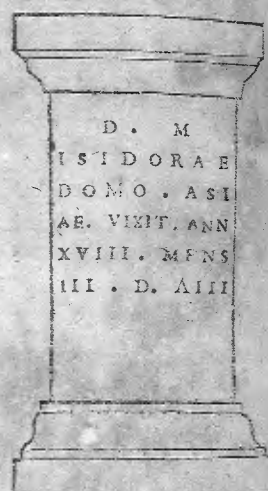 D . M
ISIDORAE
DOMO . ASI
AE. VIXIT. ANN
XVIII. MENS
III . D. AIII